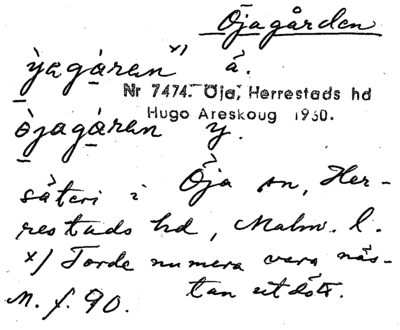 Öjagården
ỳ̠ega̠ran x) ä.
Nr 7474. Öja, Herrestads hd
Hugo Areskoug 1930.
ò̠jaga̠ran y.
säteri i Öja sn, Her-
restads hd, Malm. l.
x) Torde numera vara näs-
M. f. 90. tan utdött.